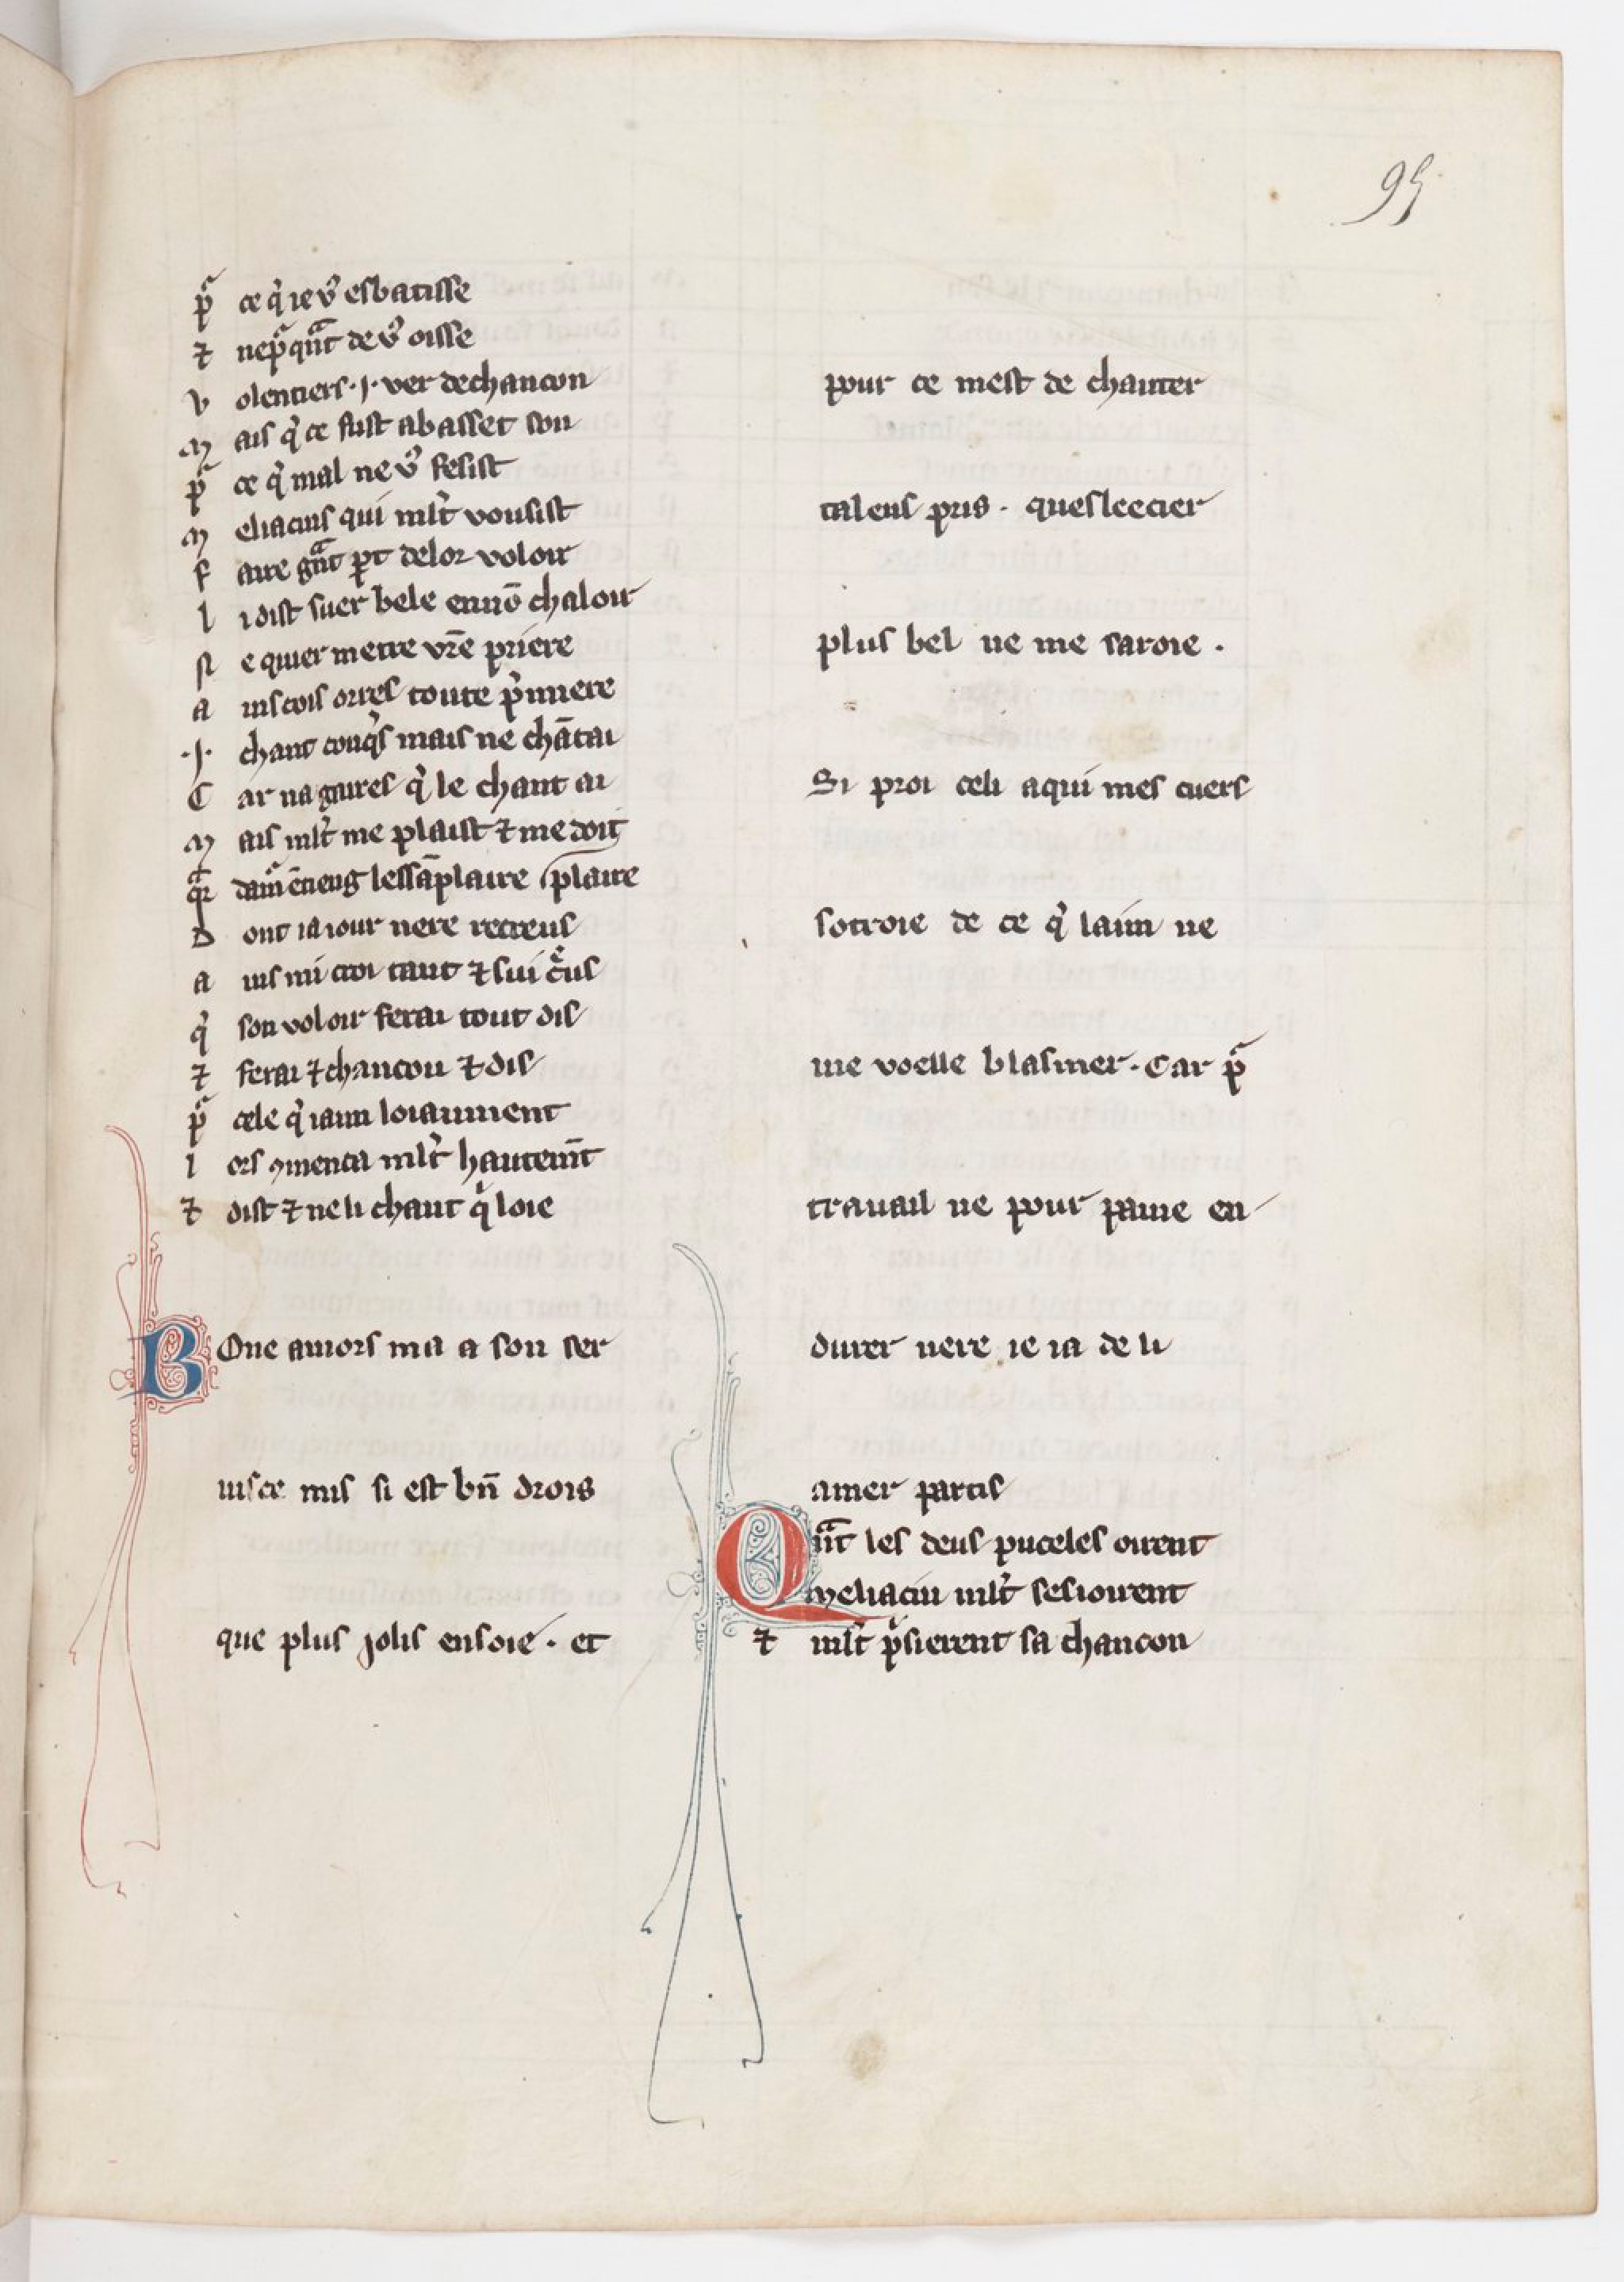 95
pᷓ ce q̉ ie vͦ esbatisse
⁊ nepᷓ qᷓnt de vͦ oisse
v olentiers ·j· ver de chancon
m ais q̉ ce fust a basset son
pᷓ ce q̉ mal ne vͦ fesist
m eliacins qui ml̉t vousist
f aire gᷓnt ꝑt de lor voloir
l i dist suer bele en nō chaloir
n e quier metre vr̄e priere
a inscois orres toute p̉miere
·j· chant conq̉s mais ne chātai
C ar na gaires q̉ le chant ai
m ais ml̉t me plaist ⁊ me doit
plaire
D ont ia iour nere recreus
a ins mi croi tant ⁊ sui c̉us
q̉ son voloir ferai tout dis
⁊ ferai ⁊ chancon ⁊ dis
pᷓ cele q̉ iaim loiaument
l ors ꝯmenca ml̉t hautem̄t
⁊ dist ⁊ ne li chaut q̉ loie
BOne amors ma a son ser
uisce mis si est bn̄ drois
que plus jolis en soie · et
pour ce mest de chanter
talens pris · quesleecier
plus bel ne me saroie ·
Si proi celi a qui mes cuers
sotroie de ce q̉ laim ne
me voelle blasmer · Car pᷓ
trauail ne pour paine en
durer nere ie ia de li
amer partis
Qᷓnt les deus puceles oirent
meliacin ml̉t sesioirent
⁊ ml̉t p̉sierent sa chancon